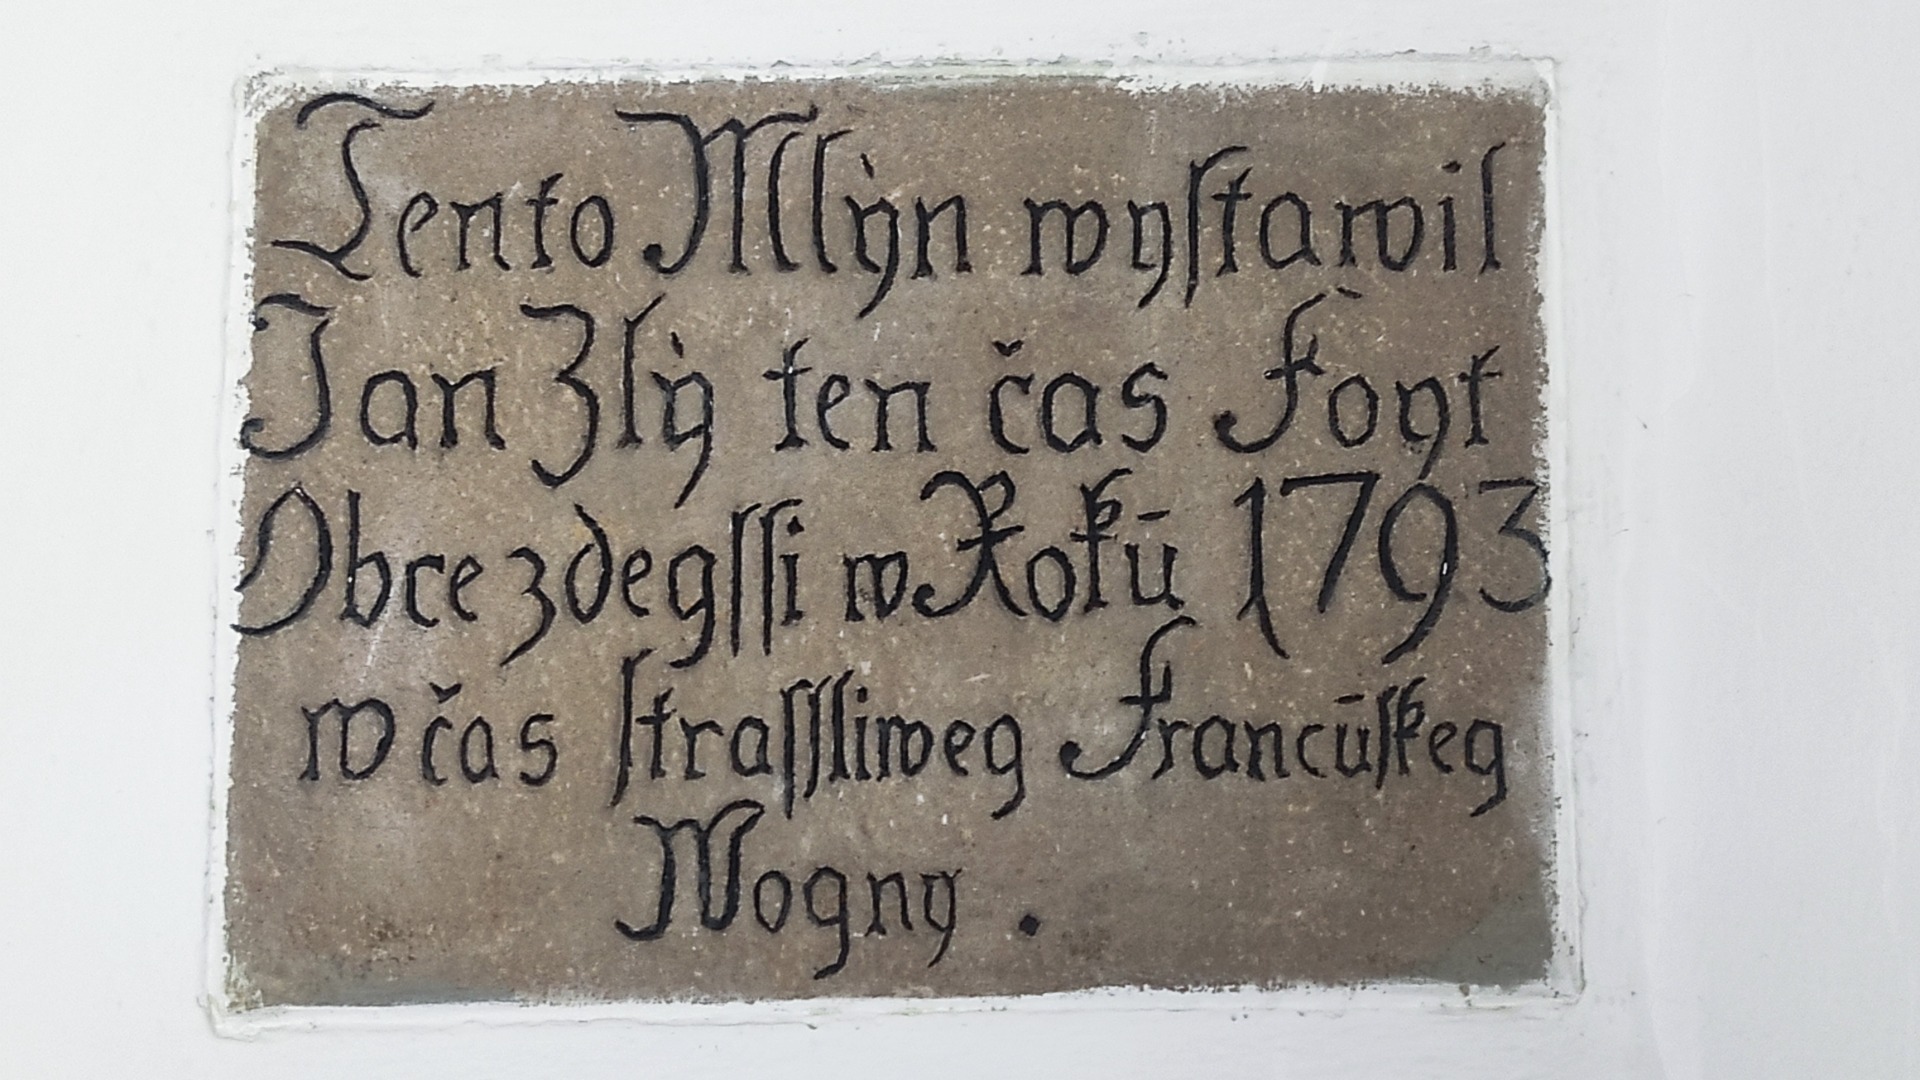 Tento Mlẏn wyſtawil
Jan Zlẏ ten čas Foyt
Obce zdegſſi w Rokū 1793
w čas ſtraſſliweg Francūſkeg
Wogny .